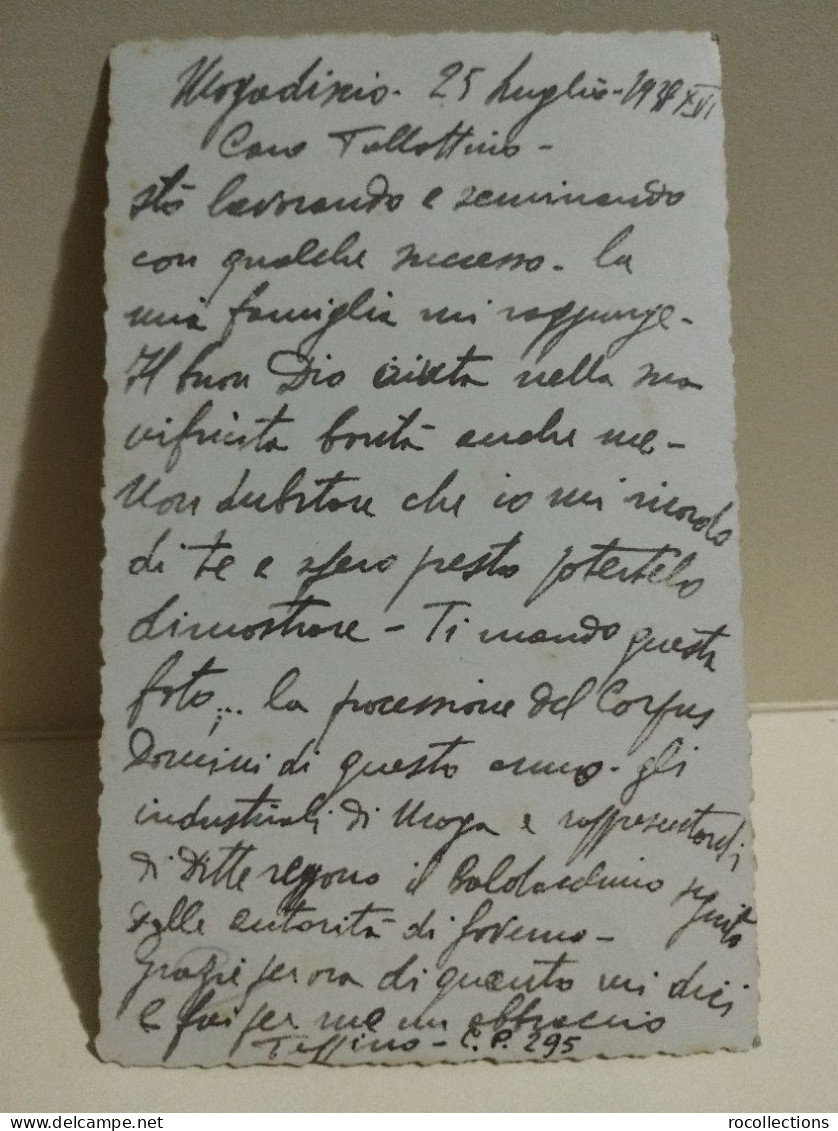 Mogadiscio - 25 Luglio - 1938 XVI
Caro Tallottino -
stò lavorando e seminando
con qualche successo - la
mia famiglia mi raggiunge -
Il buon Dio aiuta nella sua
infinita bontà anche me -
Non dubitare che io mi ricordo
di te e spero presto potertelo
dimostrare - Ti mando questa
foto... la processione del Corpus
Domini di questo anno - gli
industriali di Moga e rappresentanti
di Ditte reggono il Baldacchino seguito
dalle autorità di Governo -
grazie per ora di quanto mi dici
e fai per me un abbraccio
C.P. 295
rocollections